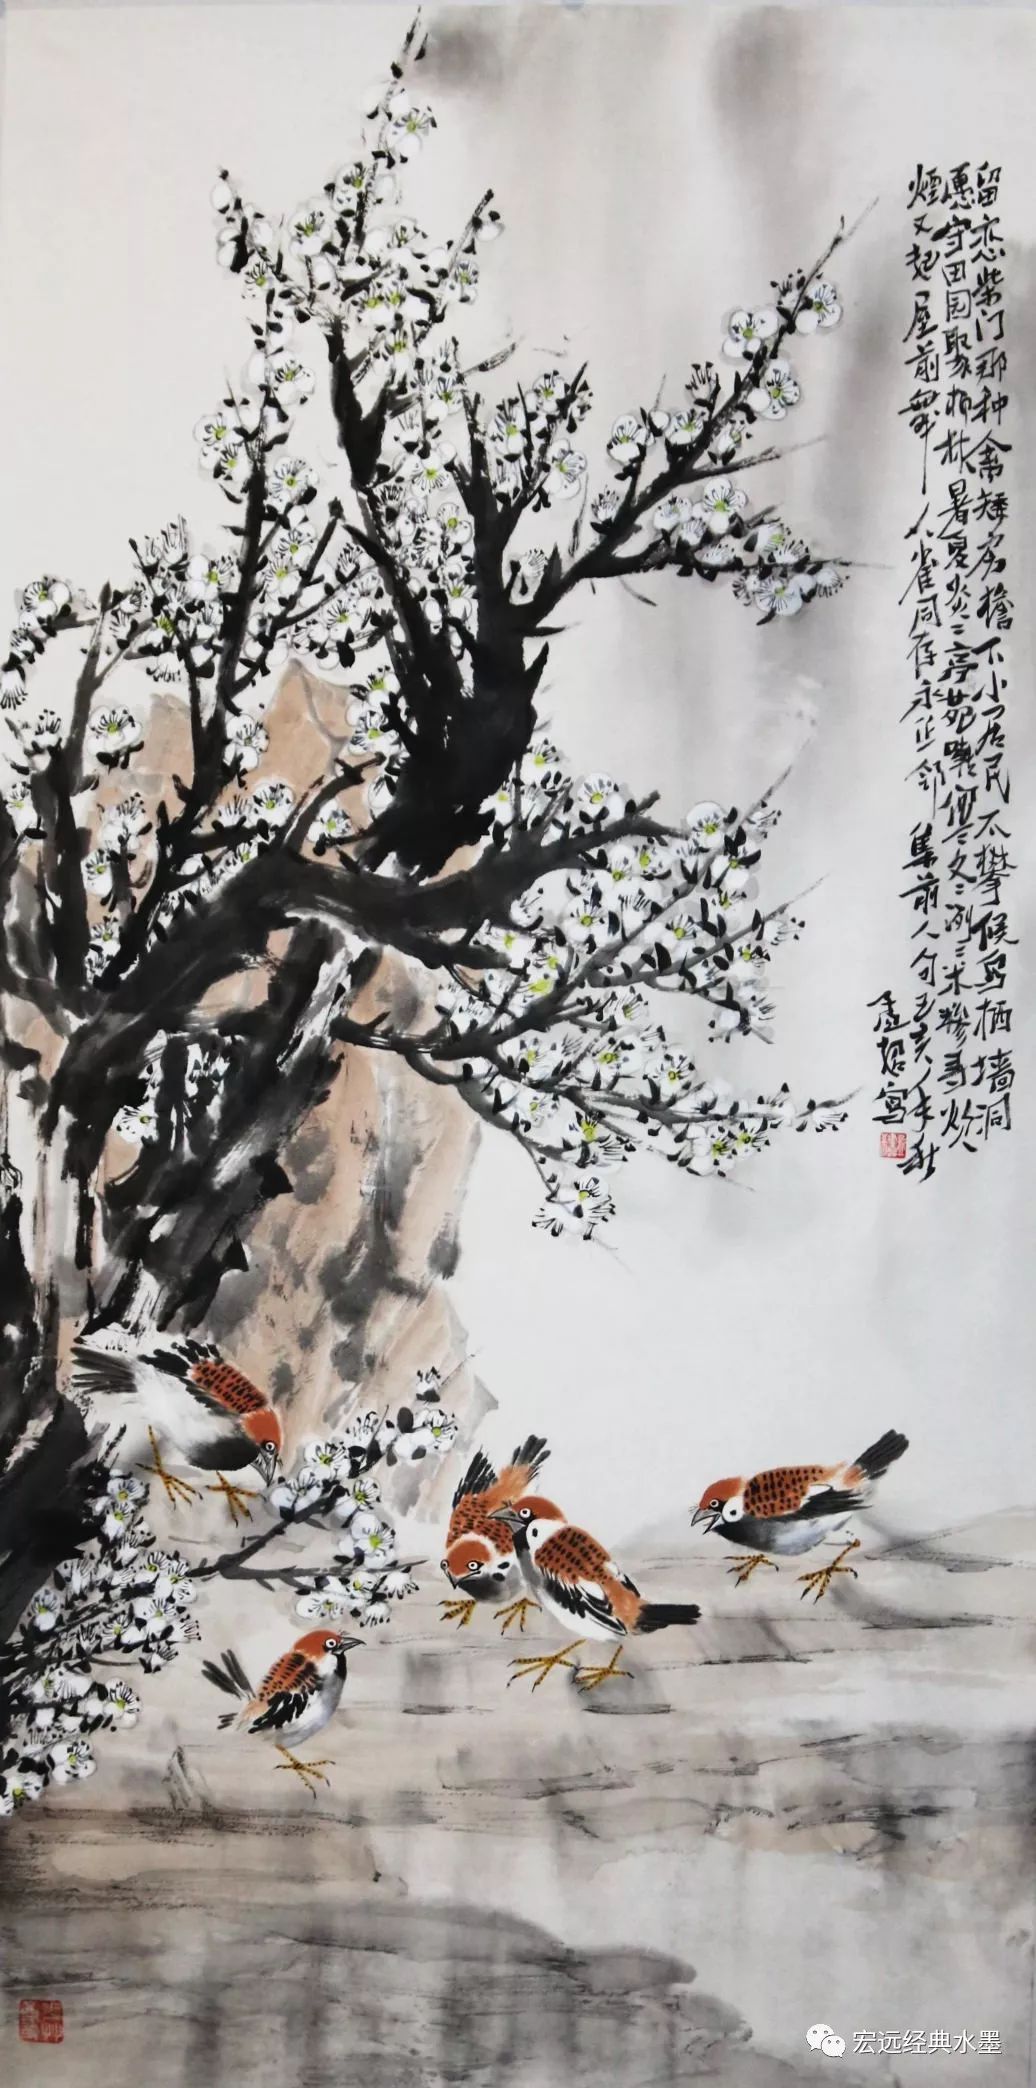 留恋柴门那种禽矮房檐下小居民不攀候鸟栖墙洞
愿守田园聚柳林暑夏炎二亭苑噪僵冬冽二米糁寻炊
烟又起屋前舞人雀同存永正邻集前人句 亥年秋
写
宏远经典水墨